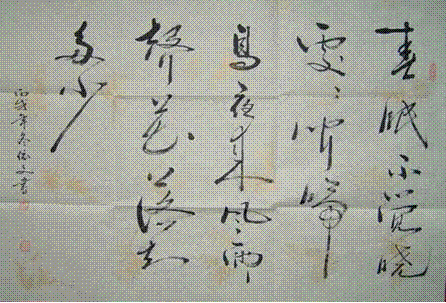 春眠不觉晓
处〻闻啼
鸟夜来风雨
声花落知
多少
丙戌年冬